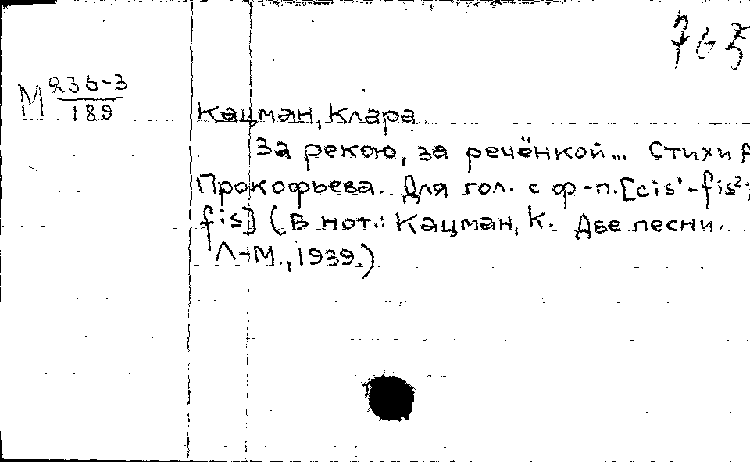 765
М 236-3
189
Кацман, Клара
За рекою, за речёнкой... Стихи А
Прокофьева. Для гол. с ф-п. [cis¹-fis²;
fis] (В нот.: Кацман, К. Две песни.
Л-М., 1939.)